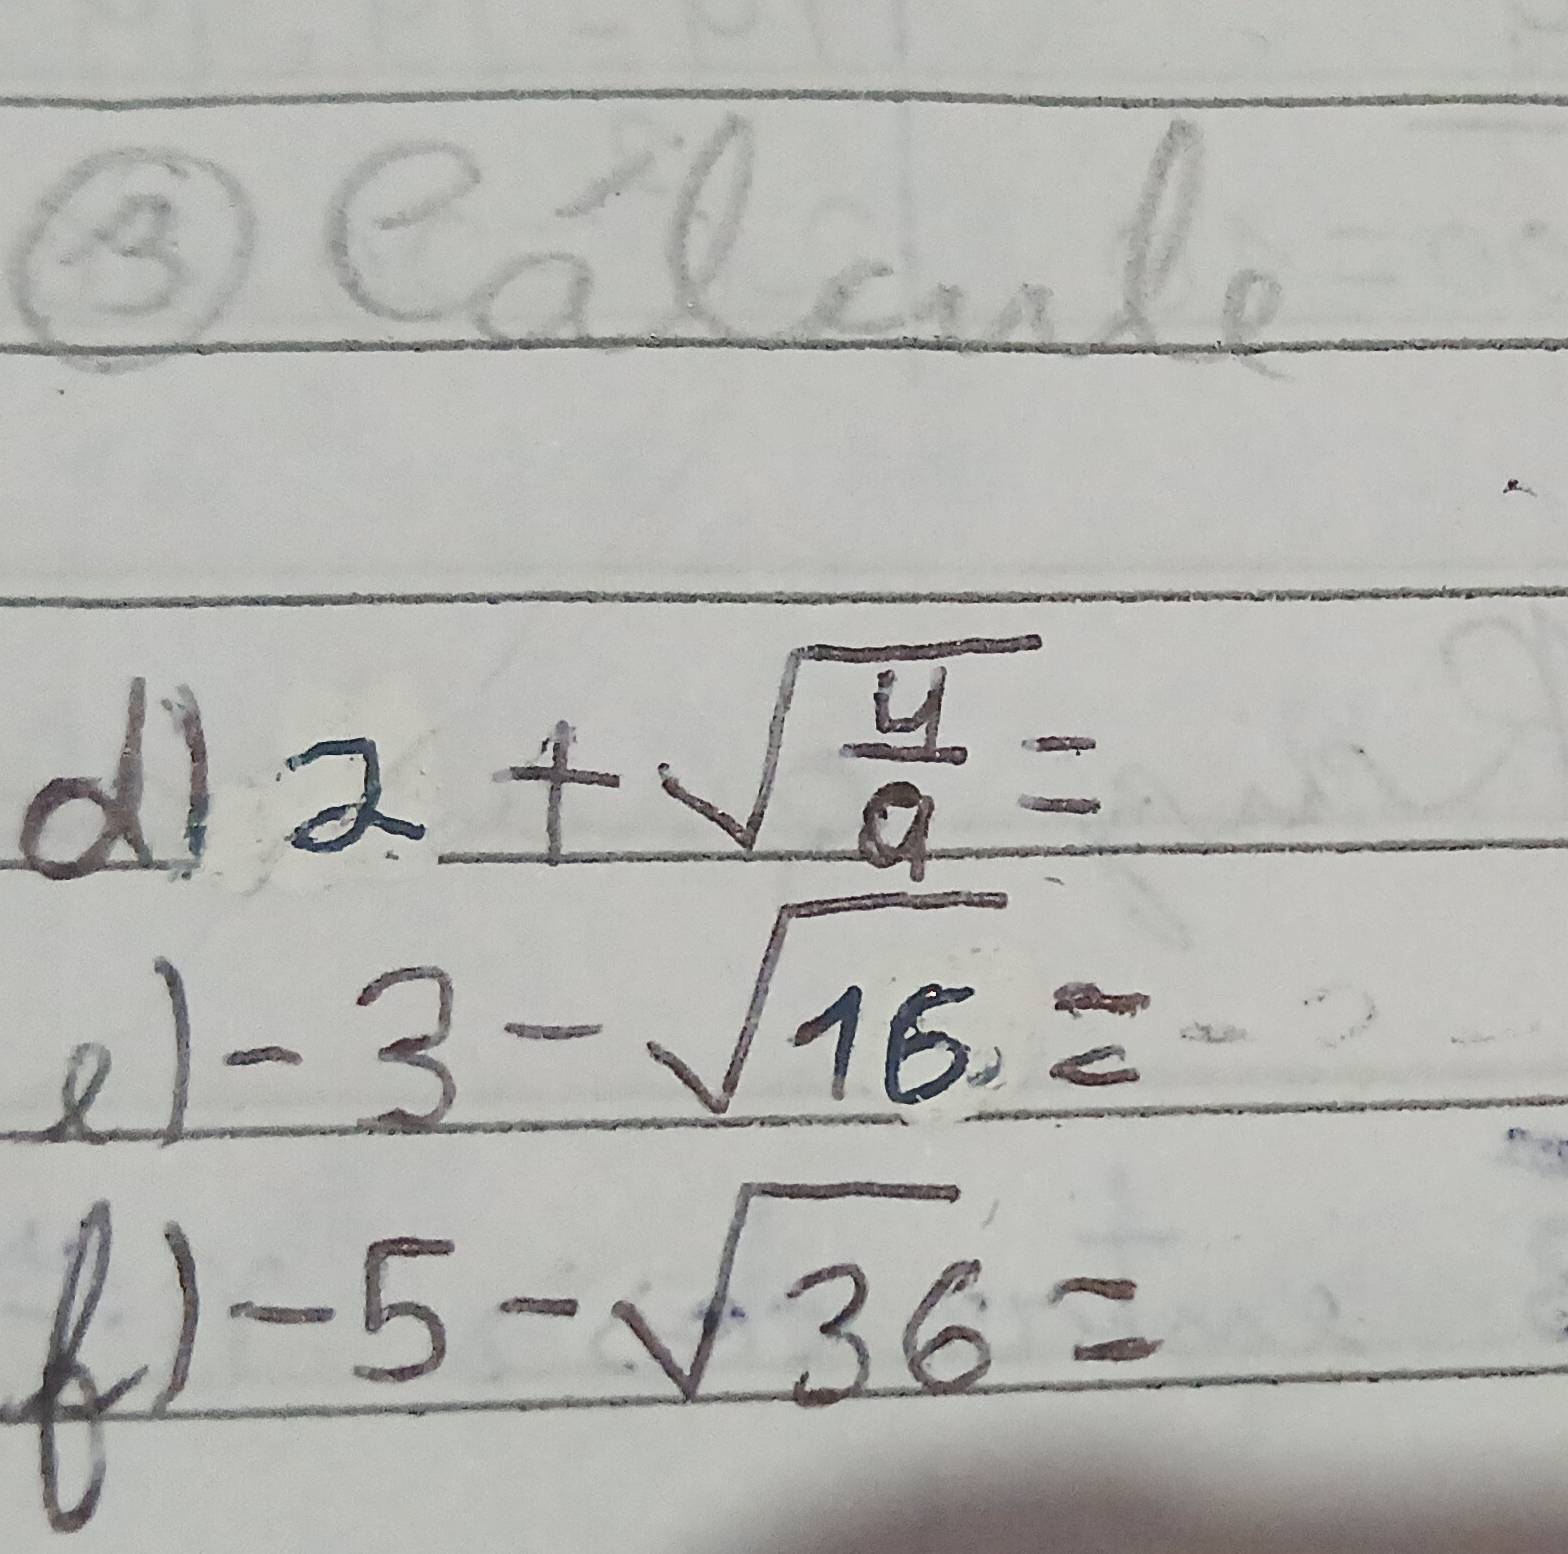 ③ Calcule
d) 2 + √(4/9) =
e) - 3 - √16 =
f) - 5 - √36 =